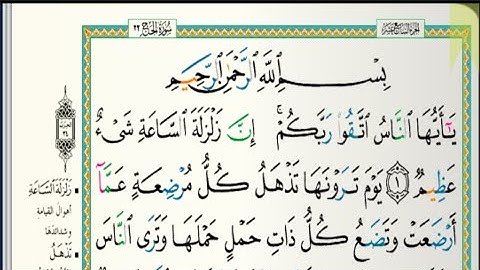 الجزء السابع عشر
سورة الحج ٢٢
بِسْمِ اللَّهِ الرَّحْمَٰنِ الرَّحِيمِ
يَٰٓأَيُّهَا النَّاسُ اتَّقُوا۟ رَبَّكُمْ ۚ إِنَّ زَلْزَلَةَ السَّاعَةِ شَىْءٌ
عَظِيمٌ ١ يَوْمَ تَرَوْنَهَا تَذْهَلُ كُلُّ مُرْضِعَةٍ عَمَّآ
أَرْضَعَتْ وَتَضَعُ كُلُّ ذَاتِ حَمْلٍ حَمْلَهَا وَتَرَى النَّاسَ
زَلْزَلَةَ السَّاعَةِ
أهوال القيامة
وشدائدها
تَذْهَلُ